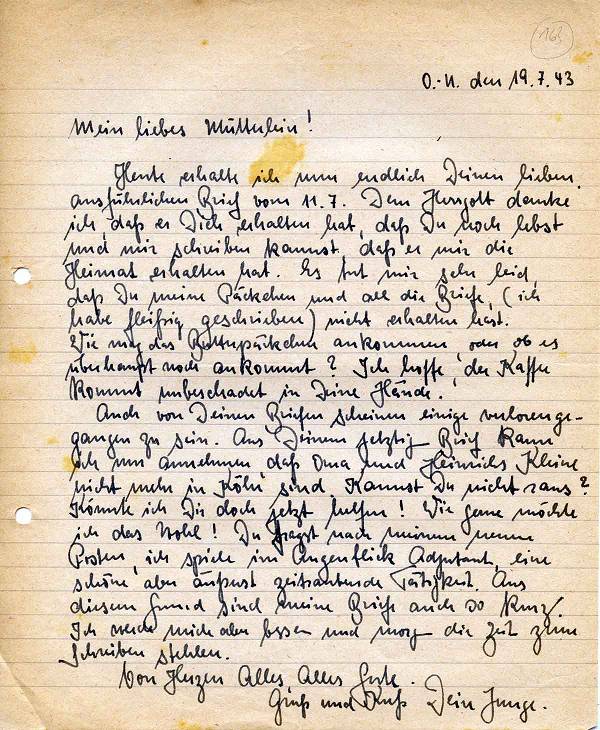 163
O.-U. den 19.7.43
Mein liebes Mütterlein!
Heute erhalte ich nun endlich Deinen lieben
ausführlichen Brief vom 11.7. Dem Herrgott danke
ich, daß er Dich erhalten hat, daß Du noch lebst
und mir schreiben kannst, daß er mir die
Heimat erhalten hat. Es tut mir sehr leid,
daß Du meine Päckchen und all die Briefe, (ich
habe fleißig geschrieben) nicht erhalten hast.
Wie mag das Butterpäckchen ankommen, oder ob es
überhaupt noch ankommt? Ich hoffe, der Kaffee
kommt unbeschadet in Deine Hände.
Auch von Deinen Briefen scheinen einige verlorenge-
gangen zu sein. Aus Deinem jetztig Brief kann
ich nun annehmen, daß Oma und Heinrichs Kleine
nicht mehr in Köln sind. Kannst Du nicht raus?
Könnte ich Dir doch jetzt helfen! Wie gerne möchte
ich das Wohl! Du fragst nach meinem neuen
Posten, ich spiele im Augenflick Adjutant, eine
schöne aber äußerst zeitraubende Tätigkeit. Aus
diesem Grund sind meine Briefe auch so kurz.
Ich werde mich aber bessern und die Zeit zum
Schreiben stehlen.
Von Herzen Alles Alles Gute.
Gruß und Kuß Dein Junge.